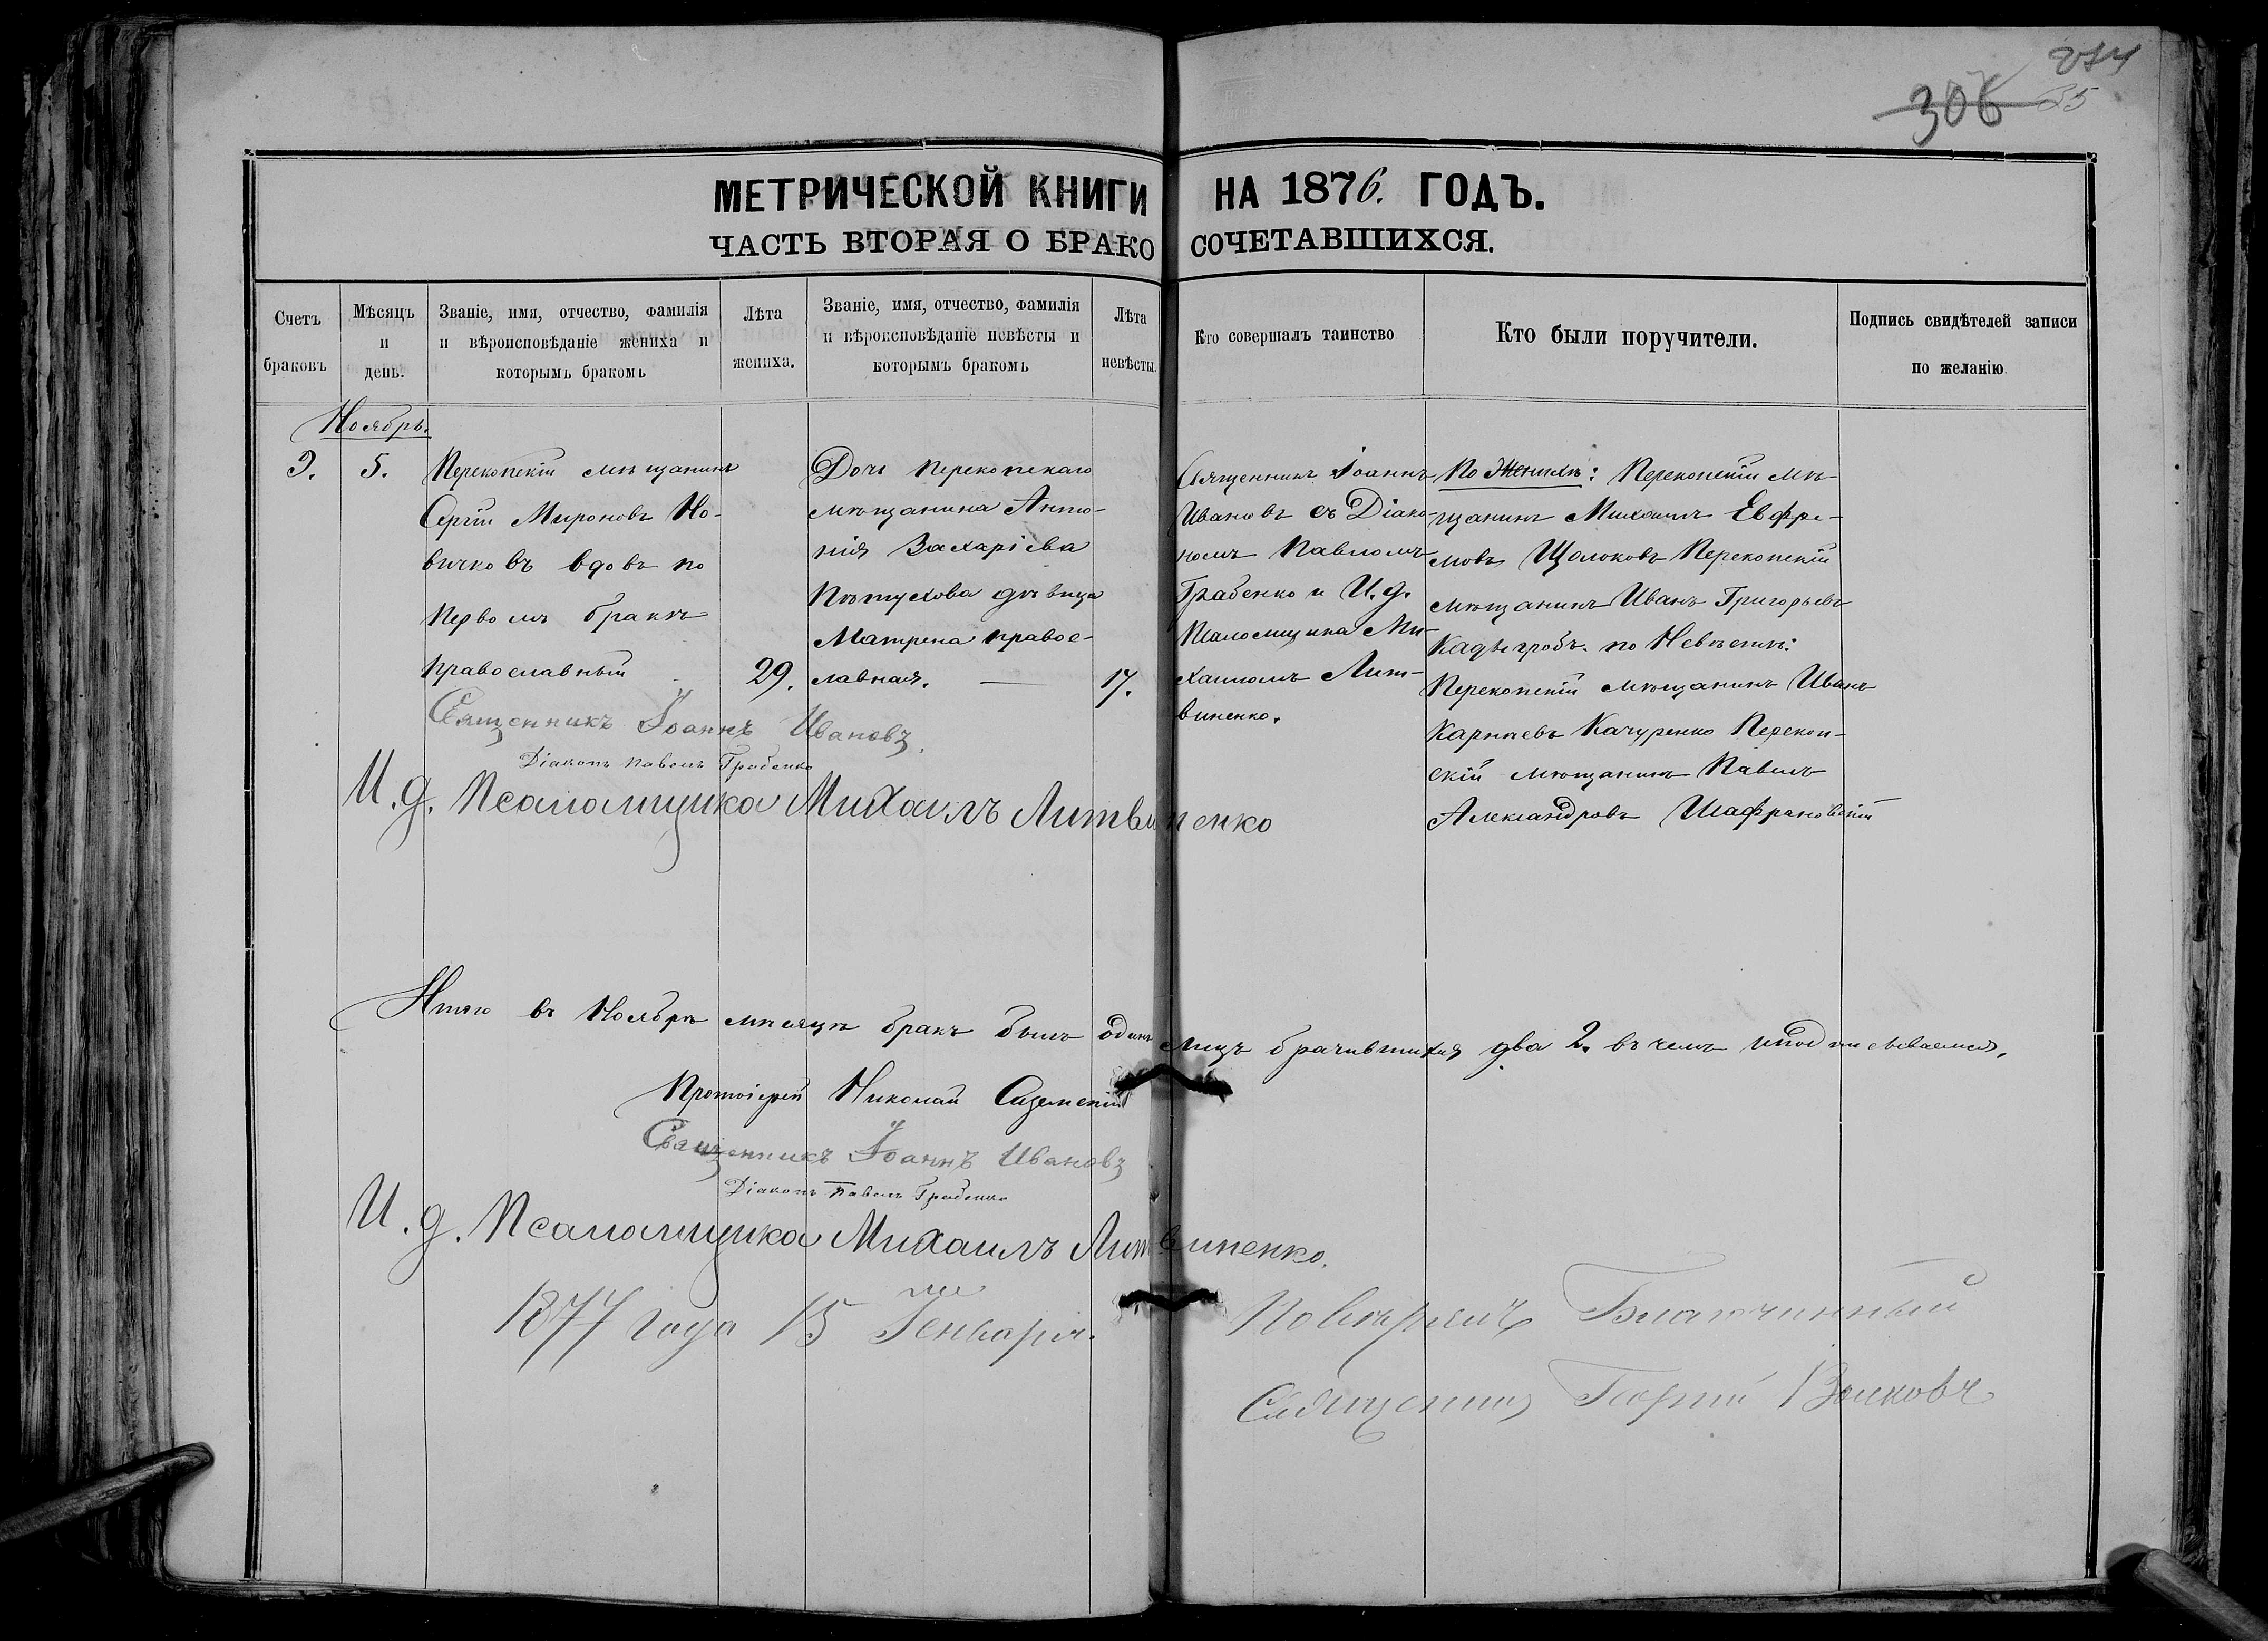 306
35
МЕТРИЧЕСКОЙ КНИГИ НА 1876. ГОДЪ.
ЧАСТЬ ВТОРАЯ О БРАКОСОЧЕТАВШИХСЯ.
Счетъ браковъ
Мѣсяцъ и день.
Званіе, имя, отчество, фамилія
и вѣроисповѣданіе жениха и
которымъ бракомъ
Лѣта жениха.
Званіе, имя, отчество, фамилія
и вѣроисповѣданіе невѣсты и
которымъ бракомъ
Лѣта невѣсты.
Кто совершалъ таинство
Кто были поручители.
Подпись свидѣтелей записи
по желанію
Ноябрь.
9.
5.
Перекопскій мѣщанинъ
Сергій Мироновъ Но-
вичковъ вдовъ по
первомъ бракѣ
православный
29.
Дочь перекопскаго
мѣщанина Анто-
нія Захаріева
Пѣтухова дѣвица
Матрена правос-
лавная.
17.
Священникъ Іоаннъ
Ивановъ съ Діако-
номъ Павломъ
Грабенко и И. д.
Псаломщика Ми-
хаиломъ Лит-
виненко.
По Женихѣ: Перекопскій мѣ-
щанинъ Михаилъ Евфре-
мовъ Щолоковъ Перекопскій
мѣщанинъ Иванъ Григорьевъ
по Невѣстѣ:
Перекопскій мѣщанинъ Иванъ
Карпаевъ Качуренко Перекоп-
скій мѣщанинъ Павелъ
Александровъ Шафрановскій
Священникъ Іоаннъ Ивановъ.
Діаконъ Павелъ Грабенко
И. д. Псаломщика Михаилъ Литвиненко
Итого въ Ноябрѣ мѣсяцѣ бракъ былъ одинъ лицъ брачившихся два 2. въ чемъ и подписываемся.
Протоіерей Николай
Священникъ Іоаннъ Ивановъ
Діаконъ Павелъ Грабенко
И. д. Псаломщика Михаилъ Литвиненко.
1877 года 15 Генваря.
Повѣрялъ Благочинный
Священникъ Георгій Волковъ